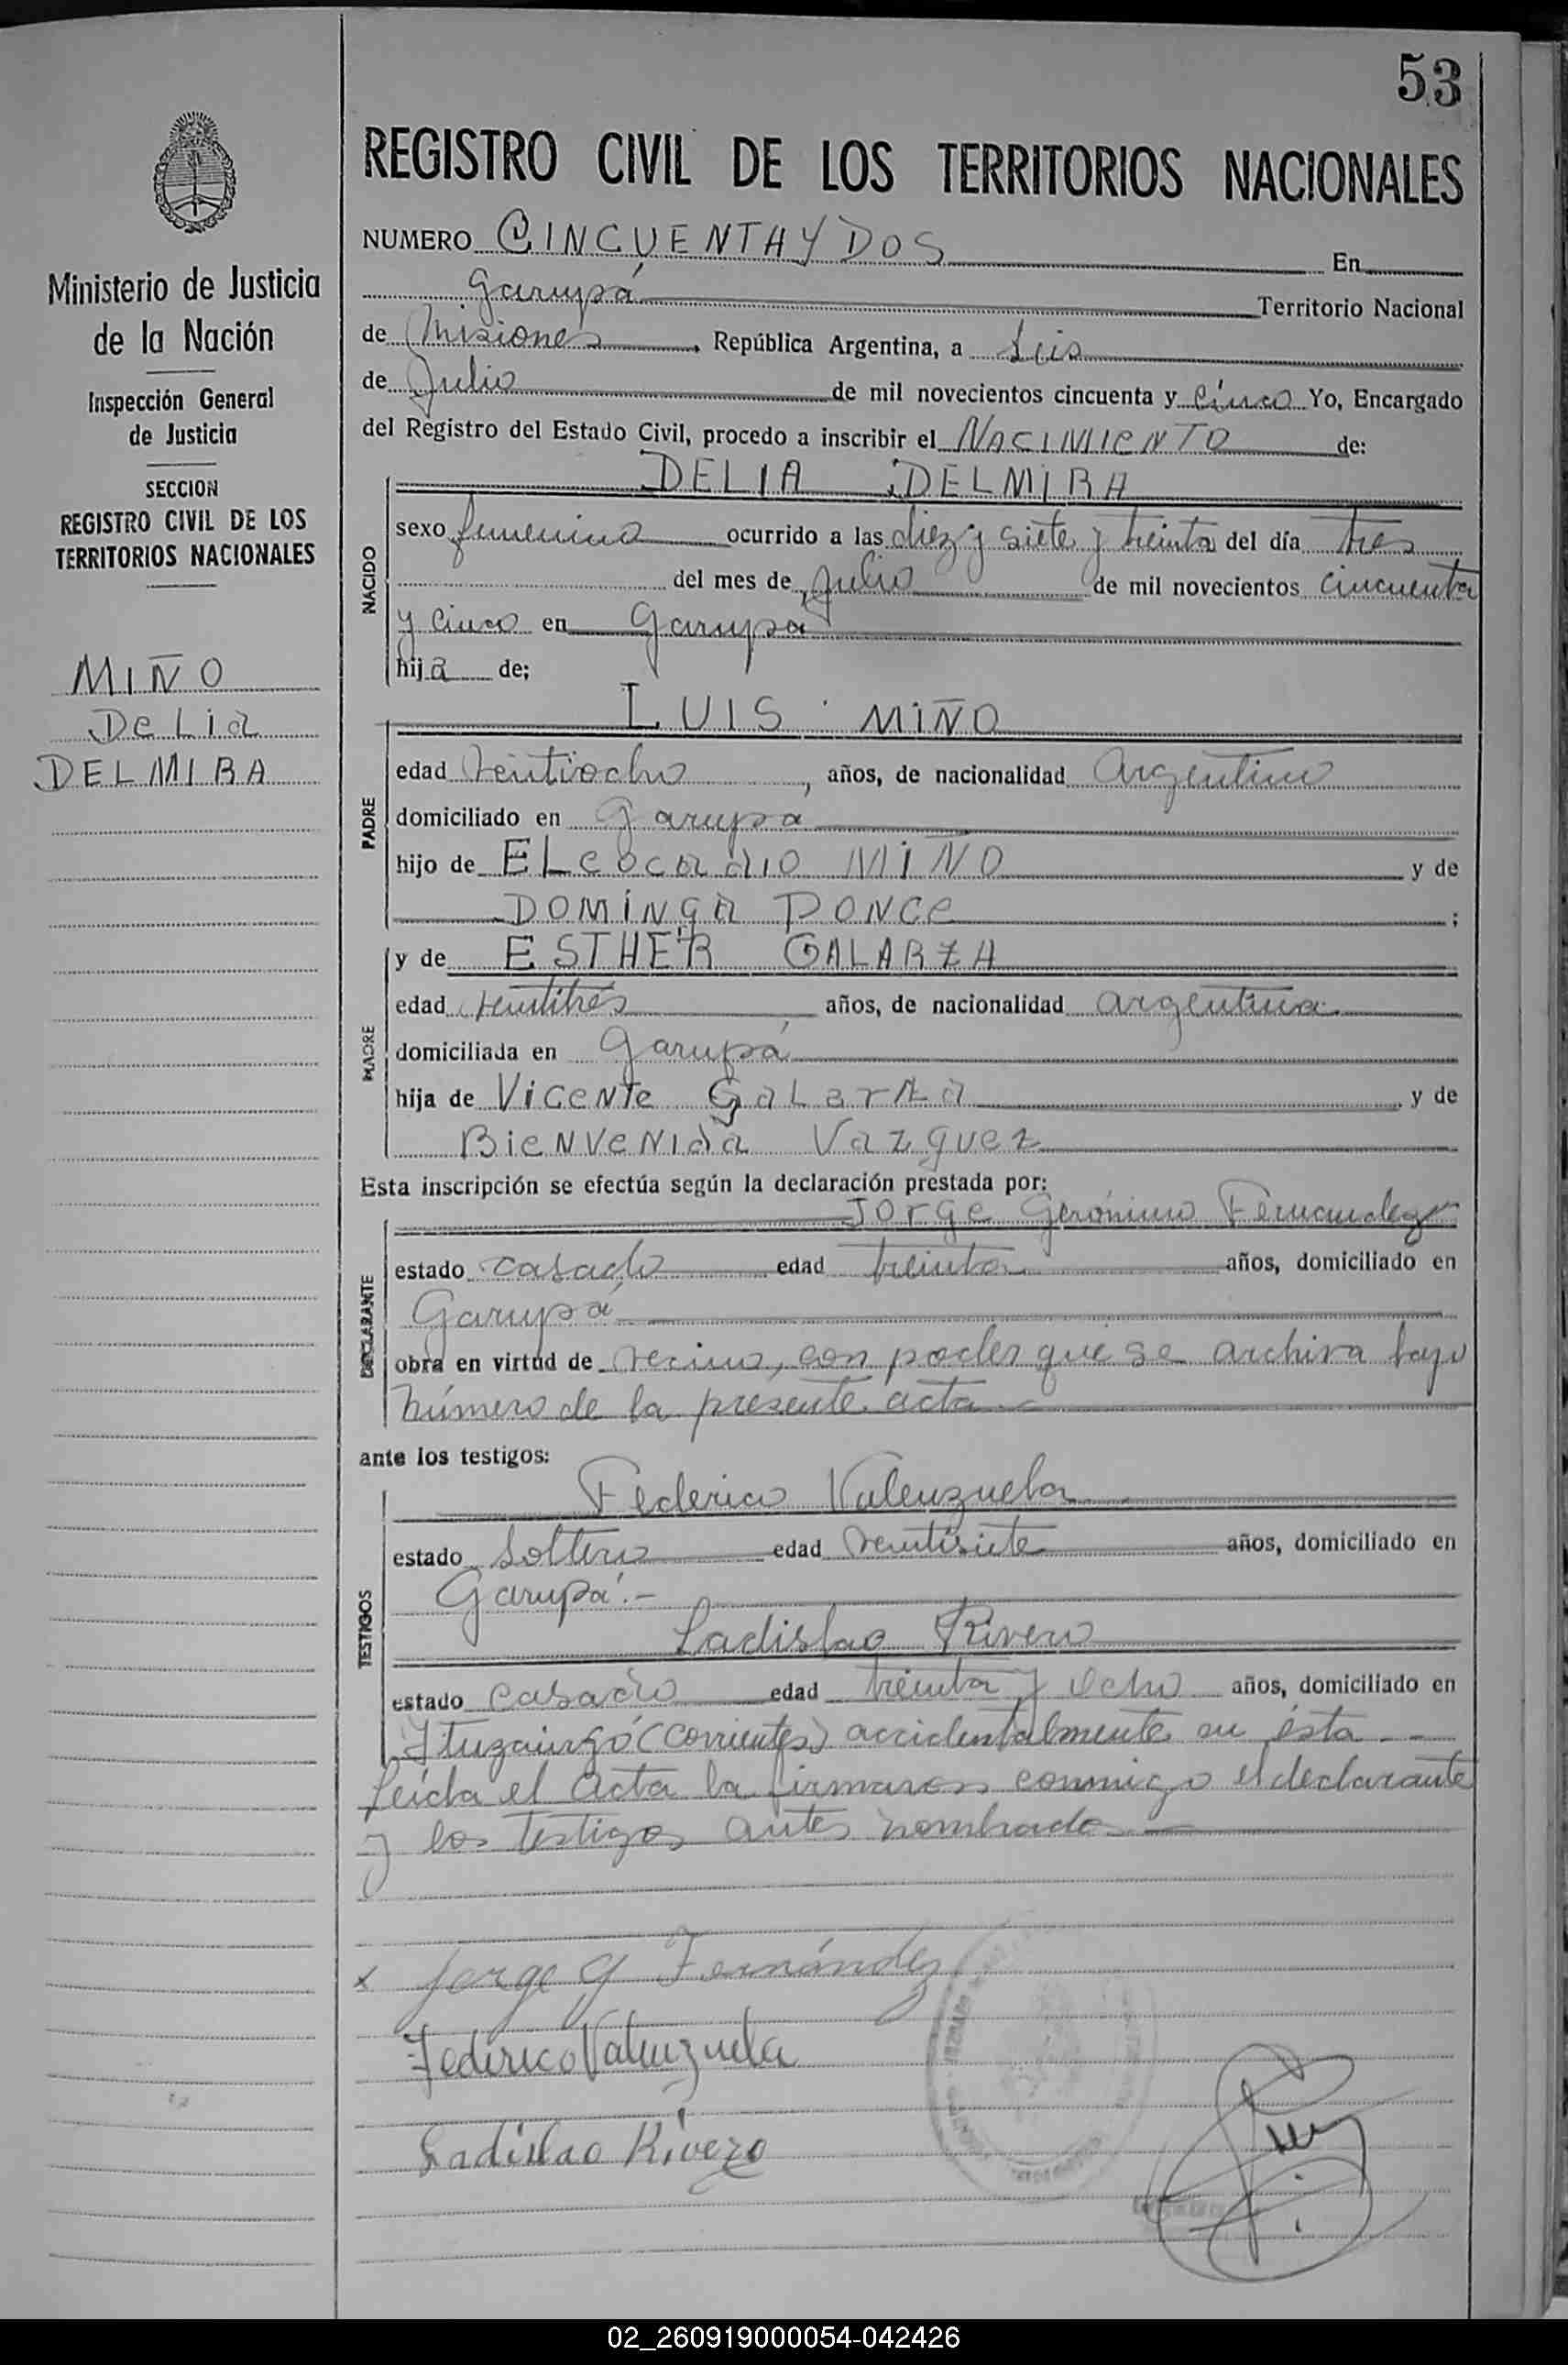 53
REGISTRO CIVIL DE LOS TERRITORIOS NACIONALES
Ministerio de Justicia
de la Nación
Inspección General
de Justicia
SECCION
REGISTRO CIVIL DE LOS
TERRITORIOS NACIONALES
MIÑO
DeLia
DELMIRA
NUMERO CINCUENTAYDOS En
Garupá Territorio Nacional
de Misiones, República Argentina, a seis
de Julio de mil novecientos cincuenta y cinco Yo, Encargado
del Registro del Estado Civil, procedo a inscribir el NACIMIENTO de:
DELIA DELMIRA
NACIDO
sexo femenino ocurrido a las diez y siete y treinta del día tres
del mes de Julio de mil novecientos cincuenta
y cinco en Garupá
hija de;
LUIS MIÑO
PADRE
edad veintiocho, años, de nacionalidad Argentino
domiciliado en Garupá
hijo de ELeocadio MIÑO y de
DOMINGA PONCE;
y de ESTHER GALARZA
MADRE
edad veintitrés años, de nacionalidad argentina
domiciliada en Garupá
hija de Vicente Galarza y de
Bienvenida Vazquez
Esta inscripción se efectúa según la declaración prestada por:
Jorge Gerónimo Fernandez
DECLARANTE
estado casado edad treinta años, domiciliado en
Garupá
obra en virtud de vecino, con poder que se archiva bajo
número de la presente acta.-
ante los testigos:
Federico Valenzuela
TESTIGOS
estado Soltero edad veintisiete años, domiciliado en
Garupá.-
Ladislao Rivero
estado casado edad treinta y ocho años, domiciliado en
Ituzaingó (Corrientes) accidentalmente en ésta.--
Leída el Acta la firmaron conmigo el declarante
y los testigos antes nombrados.-
x Jorge G Fernández
Federico Valenzuela
Ladislao Rivero
02_260919000054-042426